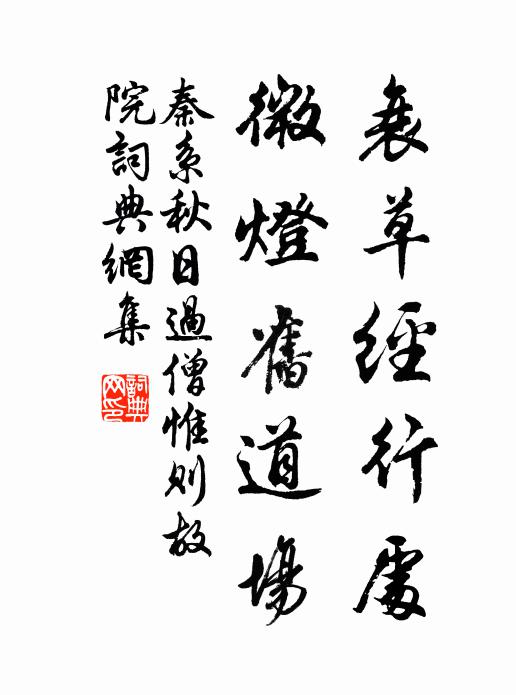 衰草經行處
微燈舊道場
秦系秋日過僧惟則故
院詞典網集
詞典
网印